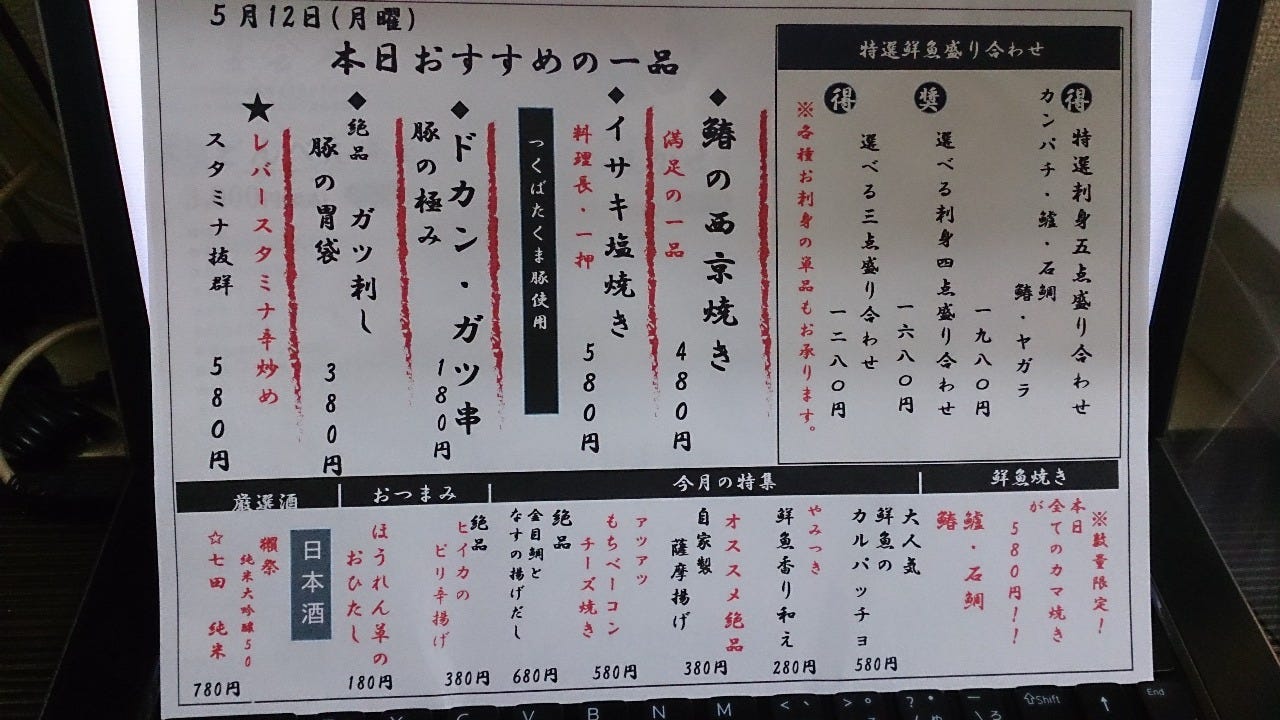 5月12日(月曜)
本日おすすめの一品
特選鮮魚盛り合わせ
得 特選刺身五点盛り合わせ
カンパチ・鱸・石鯛
鰆・ヤガラ
一九八〇円
奨 選べる刺身四点盛り合わせ
一六八〇円
得 選べる三点盛り合わせ
一二八〇円
※各種お刺身の単品もお承ります。
◆鰆の西京焼き
満足の一品
480円
◆イサキ塩焼き
料理長・一押
580円
つくばたくま豚使用
◆ドカン・ガツ串
豚の極み
180円
◆絶品 ガツ刺し
豚の胃袋
380円
★レバースタミナ辛炒め
スタミナ抜群
580円
鮮魚焼き
※数量限定!
本日
全てのカマ焼き
が
580円!!
鱸・石鯛
鰆
今月の特集
大人気
鮮魚の
カルパッチョ
580円
やみつき
鮮魚香り和え
280円
オススメ絶品
自家製
薩摩揚げ
380円
アツアツ
もちベーコン
チーズ焼き
580円
絶品
金目鯛と
なすの揚げだし
680円
おつまみ
絶品
ヒイカの
ピリ辛揚げ
380円
ほうれん草の
おひたし
180円
厳選酒
日本酒
獺祭
純米大吟醸50
☆七田 純米
780円
X
C
V
B
N
M
<
、
>
。
?
・
め
ー
\
ろ
⇧Shift
↑
End